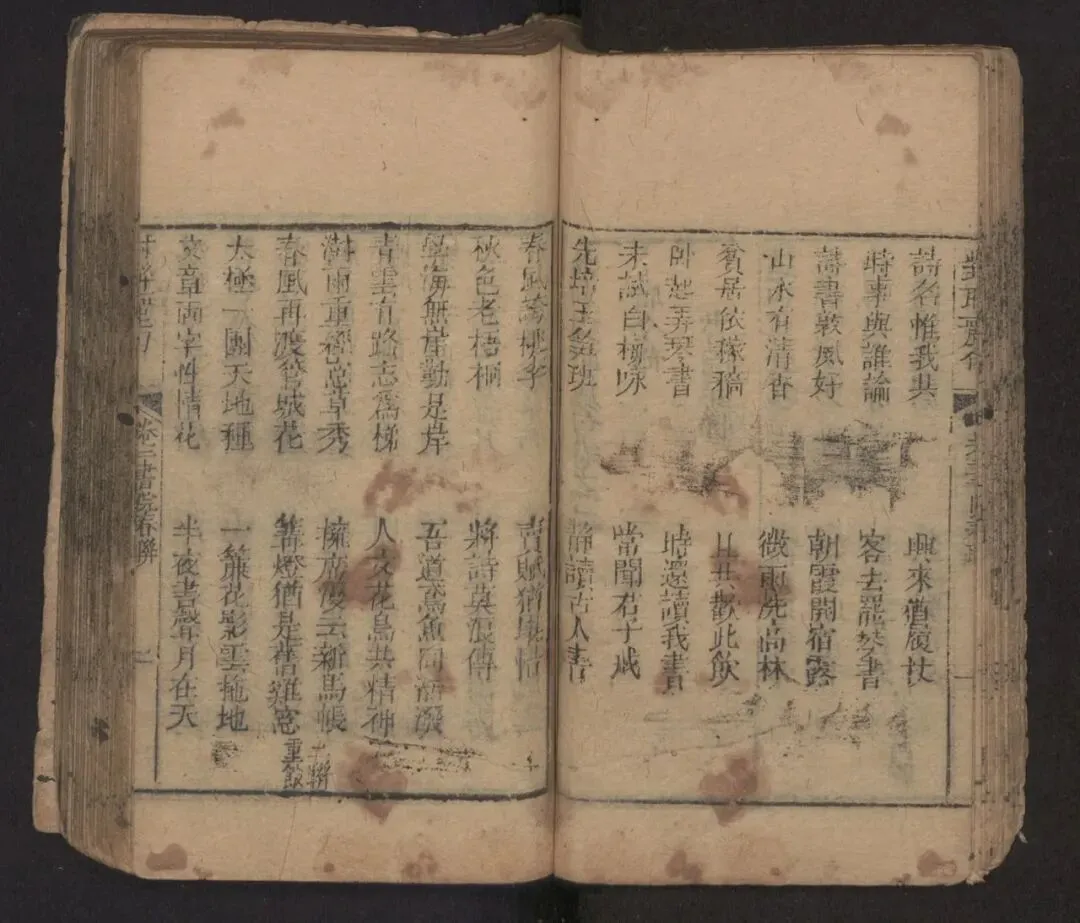 詩名惟我共　興來猶屐杖
時事與誰論　客去罷琴書
詩書敦夙好　朝霞開宿霧
山水有清香　微雨洗高林
貧居依稼穡　且共歡此飲
卧起弄琴書　時還讀我書
未試白　當聞君子戒
先培玉筍班　靜讀古人書
春風誇桃李　賣賦猶堪惜
秋色老梧桐　將詩莫浪傳
學海無崖勤是岸　吾道鳶魚同活潑
青雲有路志爲梯　人文花鳥共精神
雨重經芸草秀　擁席漫云新馬帳　二聯
春風再渡管城花　篝燈猶是舊雞窓　重館
太極一團天地種　一簾花影雲拖地
文章兩字性情花　半夜書聲月在天
卷三書院春聯